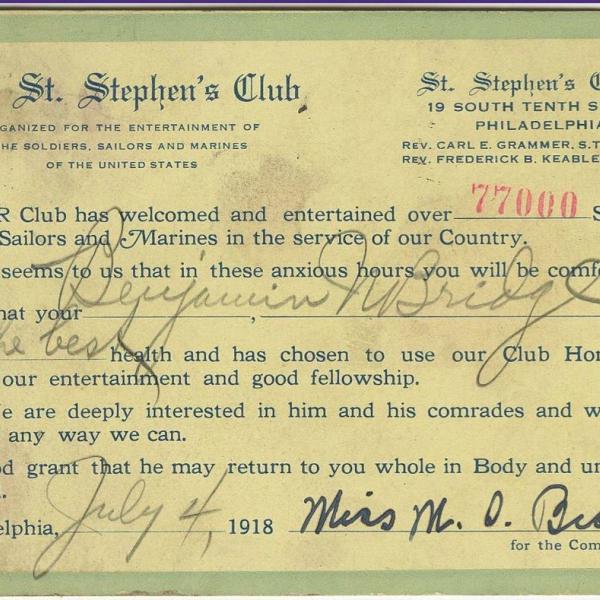 St. Stephen's Club
GANIZED FOR THE ENTERTAINMENT OF
HE SOLDIERS, SAILORS AND MARINES
OF THE UNITED STATES
St. Stephen's C
19 SOUTH TENTH S
PHILADELPHIA
REV. CARL E. GRAMMER, S.T.
REV. FREDERICK B. KEABLE
R Club has welcomed and entertained over 77000 S
Sailors and Marines in the service of our Country.
seems to us that in these anxious hours you will be comfo
hat your Benjamin McBridge,
he best health and has chosen to use our Club Hou
our entertainment and good fellowship.
e are deeply interested in him and his comrades and w
any way we can.
od grant that he may return to you whole in Body and un
elphia, July 4, 1918 Miss M. O.
for the Com